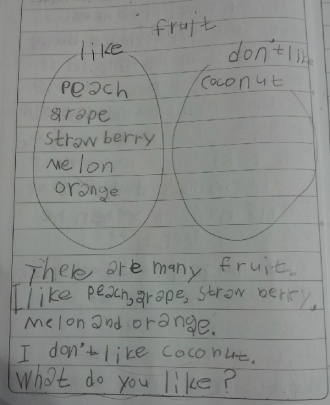 fruit
like
don't like
peach
grape
strawberry
melon
orange
coconut
There are many fruit.
I like peach, grape, straw berry,
melon and orange.
I don't like coconut.
What do you like?